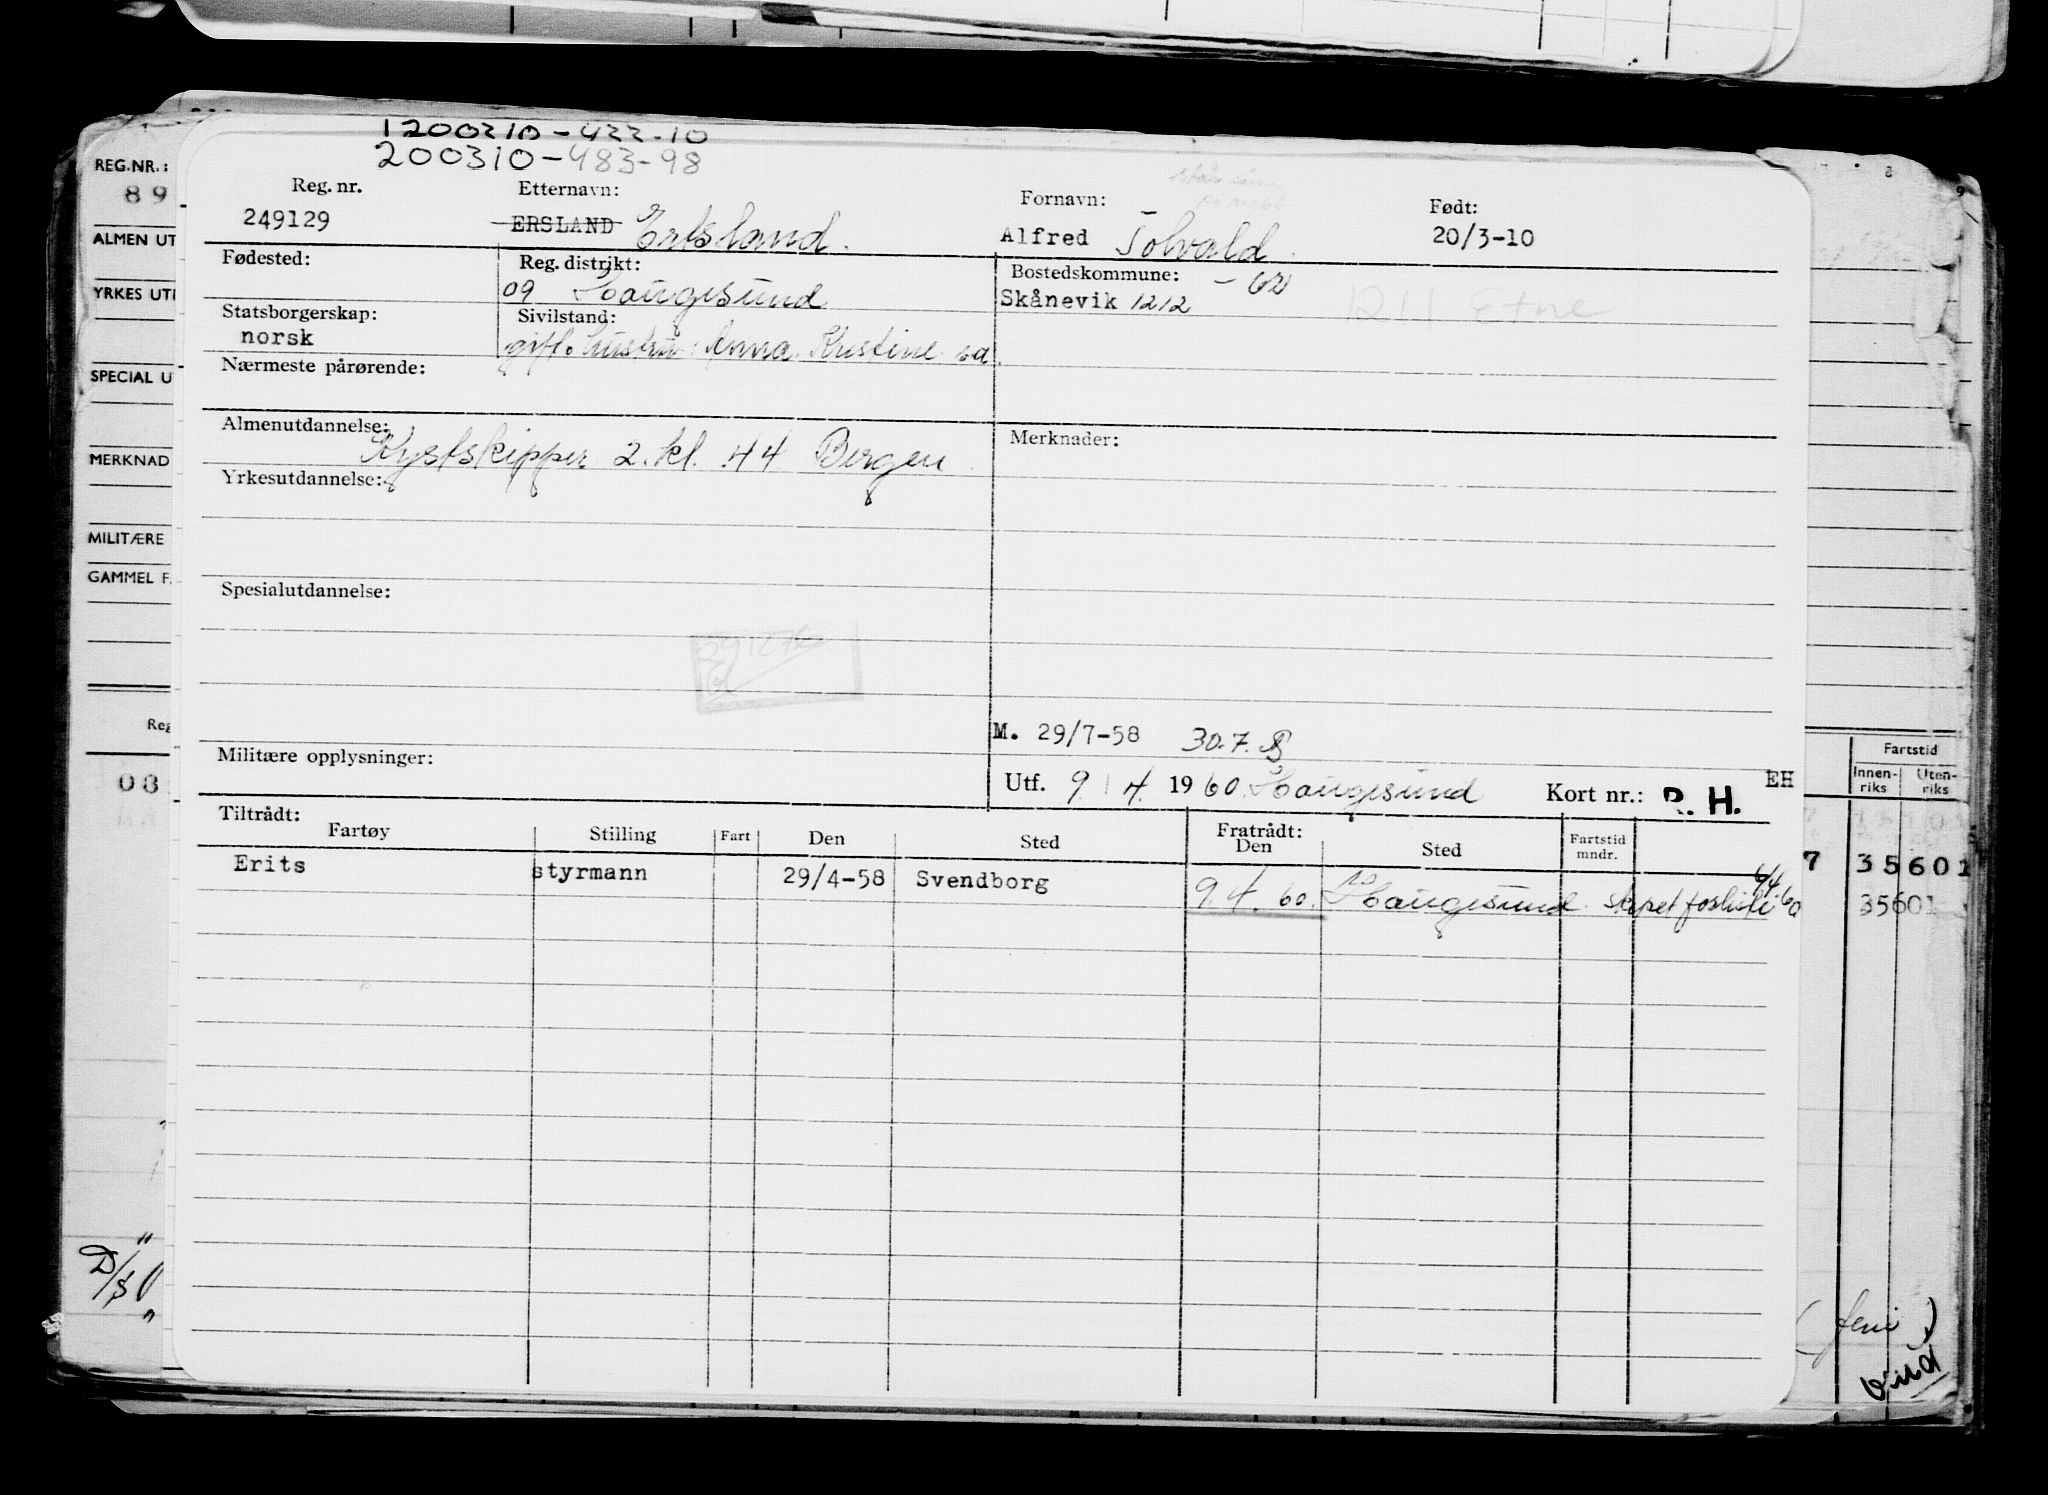 1200310-433-10
200310-483-98
REG.NR.:
89
ALMEN UT
YRKES UT
SPECIAL U
MERKNAD
MILITÆRE
GAMMEL F
Reg
Reg. nr. Etternavn: Fornavn: Født:
249129 ERSLAND Ertsland. Alfred Tolvald 20/3-10
Fødested: Reg. distrikt: Bostedskommune:
09 Haugesund Skånevik 1212 1211 Etne
Statsborgerskap: Sivilstand:
norsk gift. hustru: Anna Kristine sa.
Nærmeste pårørende:
Almenutdannelse: Merknader:
Kystskipper 2. kl. 44 Bergen
Yrkesutdannelse:
Spesialutdannelse:
M. 29/7-58 30.7.
Militære opplysninger:
Utf. 9/4. 1960. Haugesund Kort nr.: R. H. EH
Tiltrådt: Fratrådt:
Fartøy Stilling Fart Den Sted Den Sted Fartstid mndr.
Erits styrmann 29/4-58 Svendborg 9.4.60. Haugesund. 6/4.60
Fartstid
Innen-riks Uten-riks
7 35601
35601
D/S